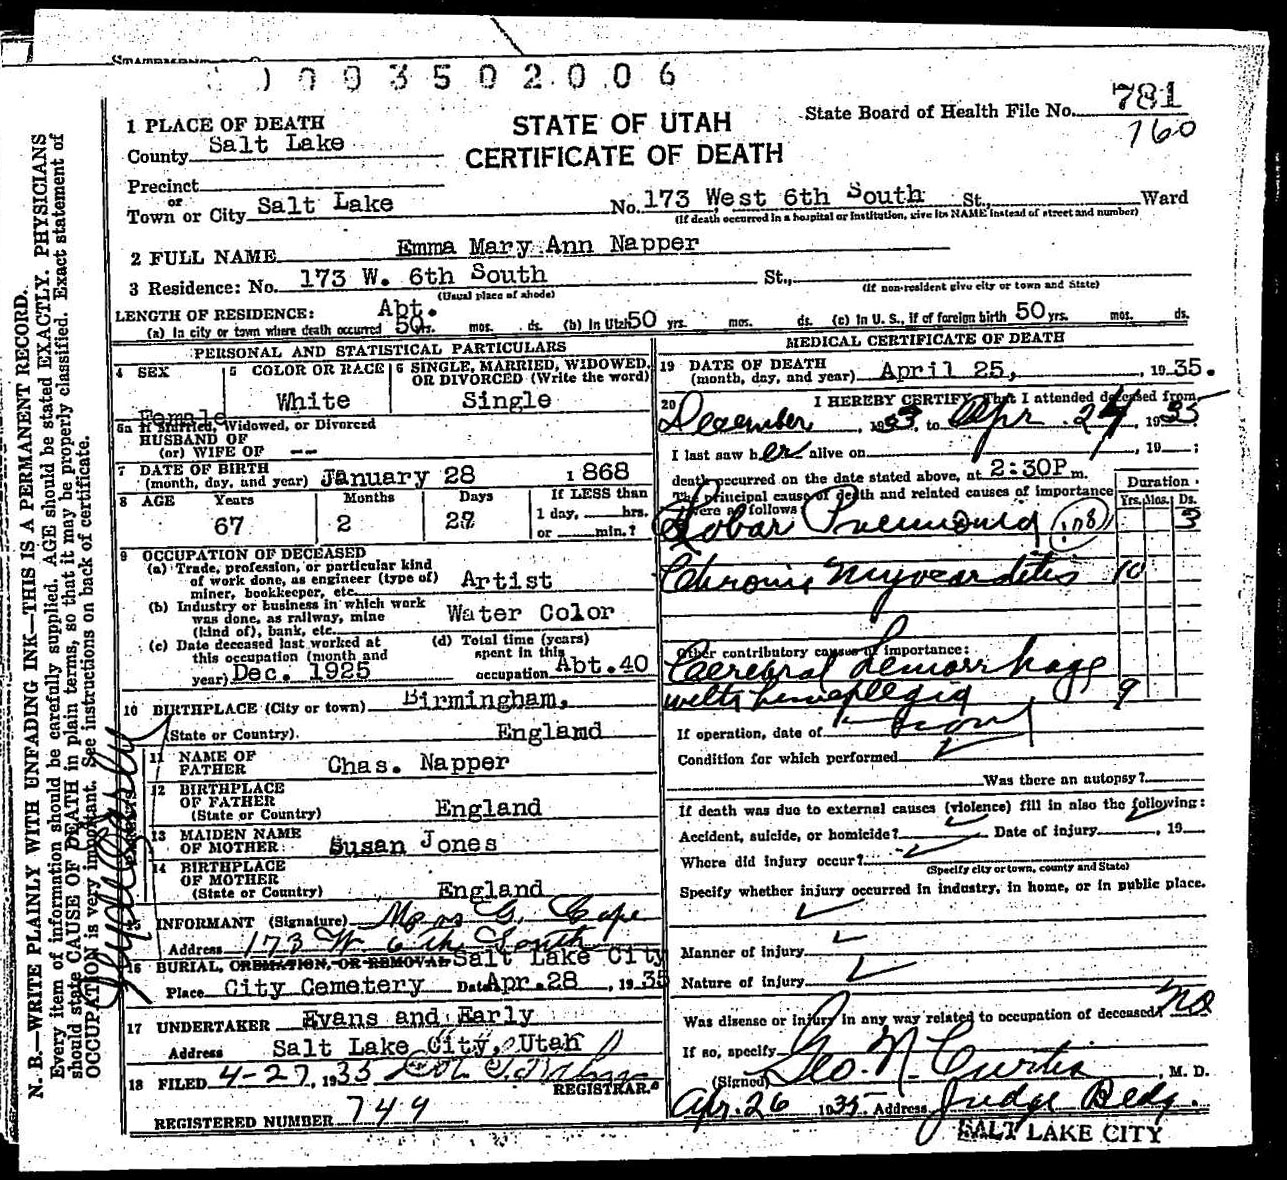 0 0 3 5 0 2 0 0 6
State Board of Health File No. 781
760
STATE OF UTAH
CERTIFICATE OF DEATH
1 PLACE OF DEATH
County Salt Lake
Precinct
or
Town or City Salt Lake No. 173 West 6th South St., Ward
(If death occurred in a hospital or institution, give its NAME instead of street and number)
2 FULL NAME Emma Mary Ann Napper
3 Residence: No. 173 W. 6th South St.,
(Usual place of abode) (If non-resident give city or town and State)
LENGTH OF RESIDENCE: Abt.
(a) In city or town where death occurred 50 yrs. mos. ds. (b) In Utah 50 yrs. mos. ds. (c) In U. S., if of foreign birth 50 yrs. mos. ds.
PERSONAL AND STATISTICAL PARTICULARS
4 SEX
Female
5 COLOR OR RACE
White
6 SINGLE, MARRIED, WIDOWED,
OR DIVORCED (Write the word)
Single
6a If Married, Widowed, or Divorced
HUSBAND OF
(or) WIFE OF --
7 DATE OF BIRTH
(month, day, and year) January 28 1868
8 AGE Years Months Days If LESS than
67 2 27 1 day, hrs.
or min.?
9 OCCUPATION OF DECEASED
(a) Trade, profession, or particular kind
of work done, as engineer (type of)
miner, bookkeeper, etc. Artist
(b) Industry or business in which work
was done, as railway, mine
(kind of), bank, etc. Water Color
(c) Date deceased last worked at
this occupation (month and
year) Dec. 1925
(d) Total time (years)
spent in this
occupation Abt. 40
10 BIRTHPLACE (City or town) Birmingham,
(State or Country) England
11 NAME OF
FATHER Chas. Napper
12 BIRTHPLACE
OF FATHER
(State or Country) England
13 MAIDEN NAME
OF MOTHER Susan Jones
14 BIRTHPLACE
OF MOTHER
(State or Country) England
15 INFORMANT (Signature) G. Cape
Address 173 W 6th South
16 BURIAL, CREMATION, OR REMOVAL Salt Lake City
Place City Cemetery Date Apr. 28, 1935
17 UNDERTAKER Evans and Early
Address Salt Lake City, Utah
18 FILED 4-27, 1935
REGISTRAR.
REGISTERED NUMBER 749
MEDICAL CERTIFICATE OF DEATH
19 DATE OF DEATH
(month, day, and year) April 25, 1935.
20 I HEREBY CERTIFY, That I attended deceased from
December, 1933, to Apr. 24, 1935
I last saw her alive on , 19 ;
death occurred on the date stated above, at 2:30P m.
The principal cause of death and related causes of importance
were as follows:
Duration
Yrs. Mos. Ds.
Lobar Pneumonia 108 3
Chronic Myocarditis 10
Other contributory causes of importance:
Cerebral Hemorrhage
with hemiplegia 9
If operation, date of none
Condition for which performed
Was there an autopsy?
If death was due to external causes (violence) fill in also the following:
Accident, suicide, or homicide? Date of injury , 19
Where did injury occur?
(Specify city or town, county and State)
Specify whether injury occurred in industry, in home, or in public place.
Manner of injury
Nature of injury
Was disease or injury in any way related to occupation of deceased? No
If so, specify
(Signed) Geo. N. Curtis, M. D.
Apr. 26 1935 Address Judge Bldg.
SALT LAKE CITY
N. B.—WRITE PLAINLY WITH UNFADING INK—THIS IS A PERMANENT RECORD.
Every item of information should be carefully supplied. AGE should be stated EXACTLY. PHYSICIANS
should state CAUSE OF DEATH in plain terms, so that it may be properly classified. Exact statement of
OCCUPATION is very important. See instructions on back of certificate.